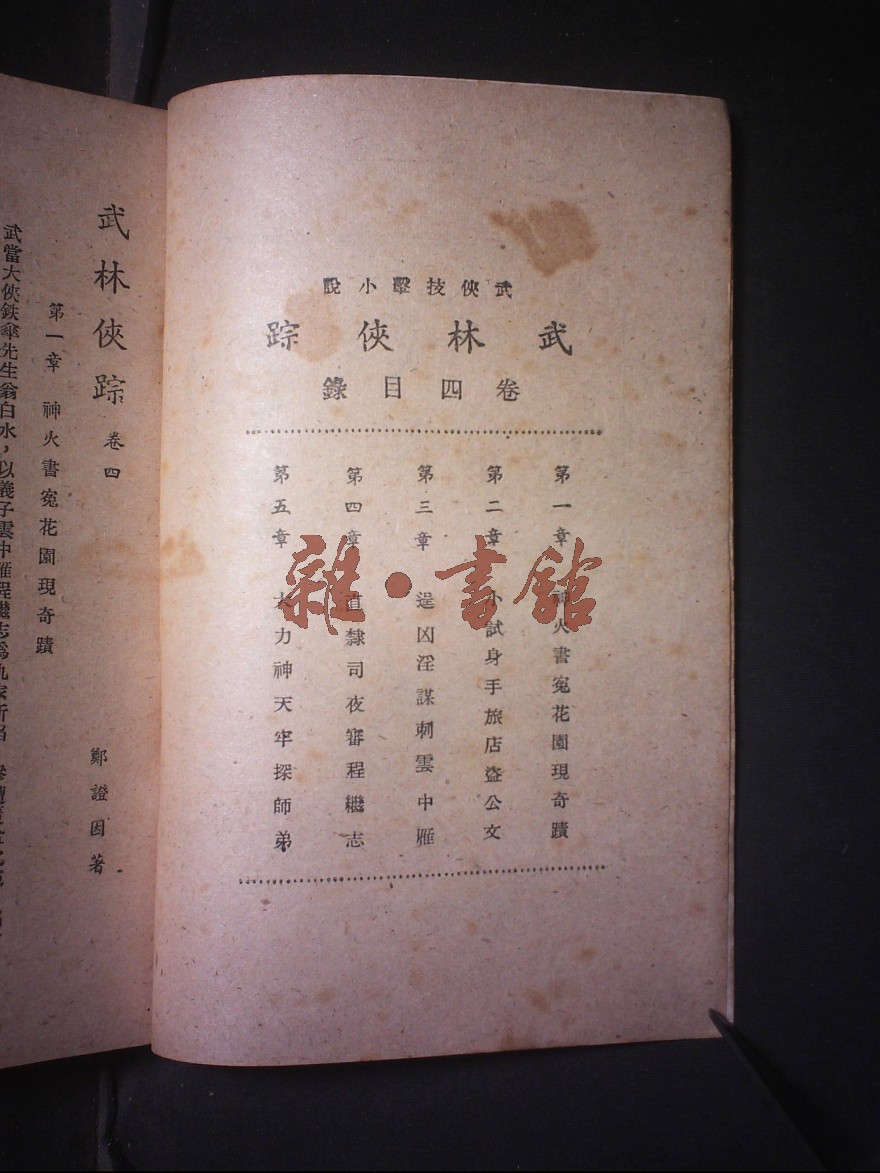 武俠技擊小說
武林俠踪
卷四目錄
第一章 神火書寃花園現奇蹟
第二章 小試身手旅店盜公文
第三章 逞凶淫謀刺雲中雁
第四章 直隸司夜審程繼志
第五章 大力神天牢探師弟
雜·書館
武林俠踪 卷四
鄭證因著
第一章 神火書寃花園現奇蹟
武當大俠鉄傘先生翁白水，以義子雲中雁程繼志爲仇家所